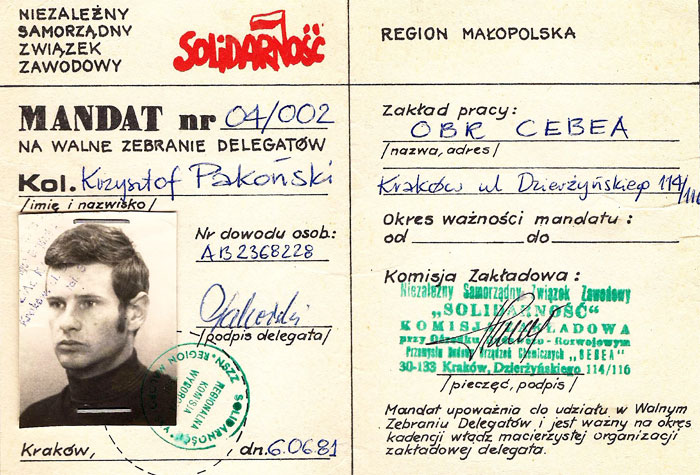 NIEZALEŻNY
SAMORZĄDNY
ZWIĄZEK
ZAWODOWY
SOLIDARNOŚĆ
MANDAT nr 04/002
NA WALNE ZEBRANIE DELEGATÓW
Kol. Krzysztof Pakoński
/imię i nazwisko/
Nr dowodu osob:
AB2368228
/podpis delegata/
NSZZ „SOLIDARNOŚĆ”
REGION
REGIONALNA
KOMISJA
Kraków, dn. 6.06.81
REGION MAŁOPOLSKA
Zakład pracy:
OBR CEBEA
/nazwa, adres/
Kraków ul Dzierżyńskiego 114/116
Okres ważności mandatu:
od do
Komisja Zakładowa:
Niezależny Samorządny Związek Zawodowy
„SOLIDARNOŚĆ”
KOMISJA ZAKŁADOWA
przy Rozwojowym
Przemysłu Budowy Urządzeń Chemicznych „CEBEA”
30-133 Kraków, Dzierżyńskiego 114/116
/pieczęć, podpis/
Mandat upoważnia do udziału w Walnym
Zebraniu Delegatów i jest ważny na okres
kadencji władz macierzystej organizacji
zakładowej delegata.